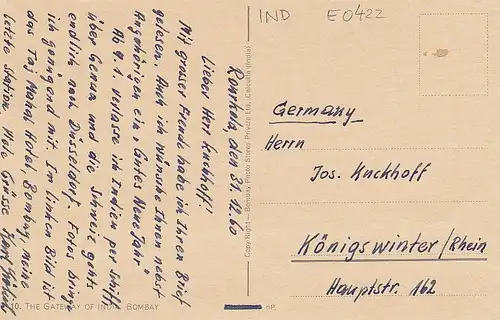 IND E0422
Rourkela, den 31.12.60
Lieber Herr Kuckhoff!
Mit grosser Freude habe ich Ihren Brief
gelesen. Auch ich wünsche Ihnen nebst
Angehörigen ein „Gutes Neue Jahr"
Ab 9.1. verlasse ich Indien per Schiff
über Genua und die Schweiz gehts
endlich nach Düsseldorf. Fotos bringe
ich genügend mit. Im linken Bild ist
das Taj Mahal Hotel, Bombay, meine
letzte Station. Viele Grüsse
10. THE GATEWAY OF INDIA, BOMBAY
Copy Right — Bombay Photo Stores Private Ltd., Calcutta (India)
nP.
Germany
Herrn
Jos. Kuckhoff
Königswinter/Rhein
Hauptstr. 162